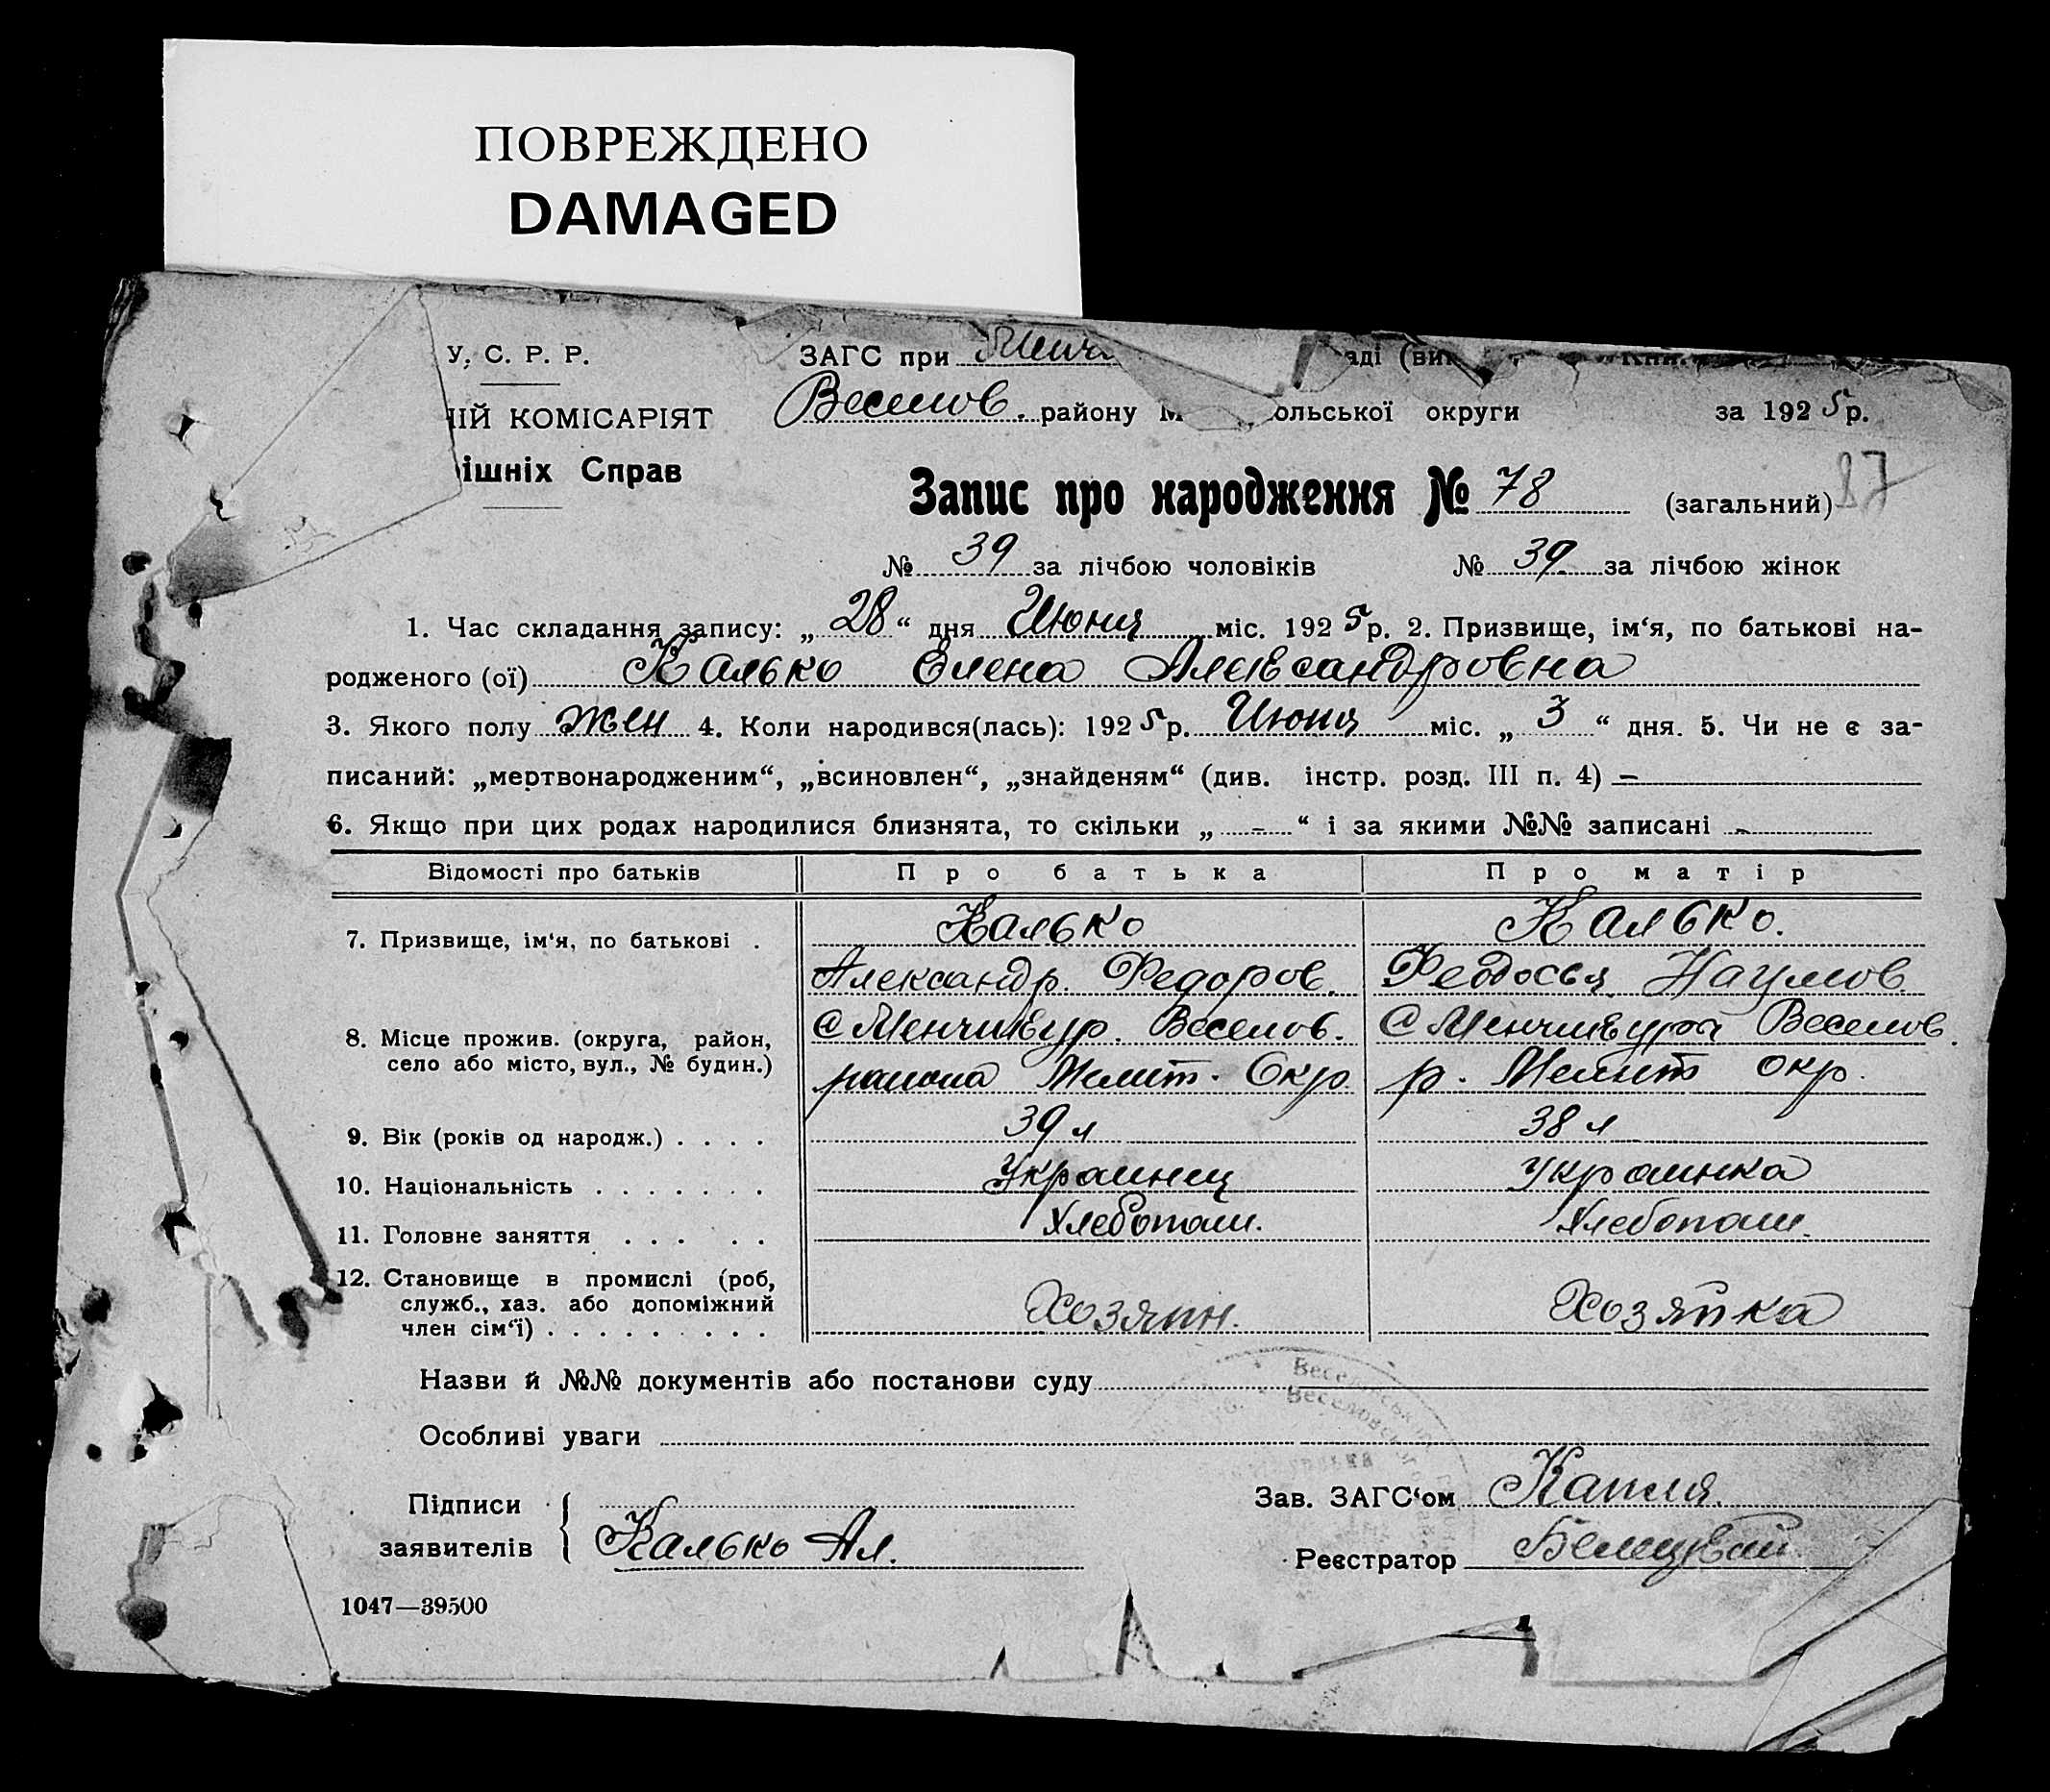 ПОВРЕЖДЕНО
DAMAGED
У. С. Р. Р.
ЗАГС при Менч аді (ви
ІЙ КОМІСАРІЯТ
Веселов. району М ольської округи за 1925 р.
ішніх Справ
Запис про народження № 78 (загальний) 87
№ 39 за лічбою чоловіків № 39 за лічбою жінок
1. Час складання запису: „28“ дня Июня міс. 1925 р. 2. Призвище, ім‘я, по батькові на-
родженого (ої) Калько Елена Александровна
3. Якого полу жен 4. Коли народився(лась): 1925 р. Июня міс. „3“ дня. 5. Чи не є за-
писаний: „мертвонародженим“, „всиновлен“, „знайденям“ (див. інстр. розд. III п. 4) —
6. Якщо при цих родах народилися близнята, то скільки „-“ і за якими №№ записані -
Відомості про батьків Про батька Про матір
7. Призвище, ім‘я, по батькові . Калько Калько.
Александр. Федоров. Феодосья Наумов.
8. Місце прожив. (округа, район, с Менчикур. Веселов. с Менчикуры Веселов.
село або місто, вул., № будин.) района Мелит. Окр. р. Мелит окр.
9. Вік (років од народж.) . . . . 39 л 38 л
10. Національність . . . . . . . Украинец Украинка
11. Головне заняття . . . . . Хлебопаш. Хлебопаш.
12. Становище в промислі (роб,
служб., хаз. або допоміжний Хозяин. Хозяйка
член сім‘ї) . . . . . . . . .
Назви й №№ документів або постанови суду
Особливі уваги
Підписи
Зав. ЗАГС‘ом Капля.
заявителів Калько Ал.
Реєстратор
1047—39500